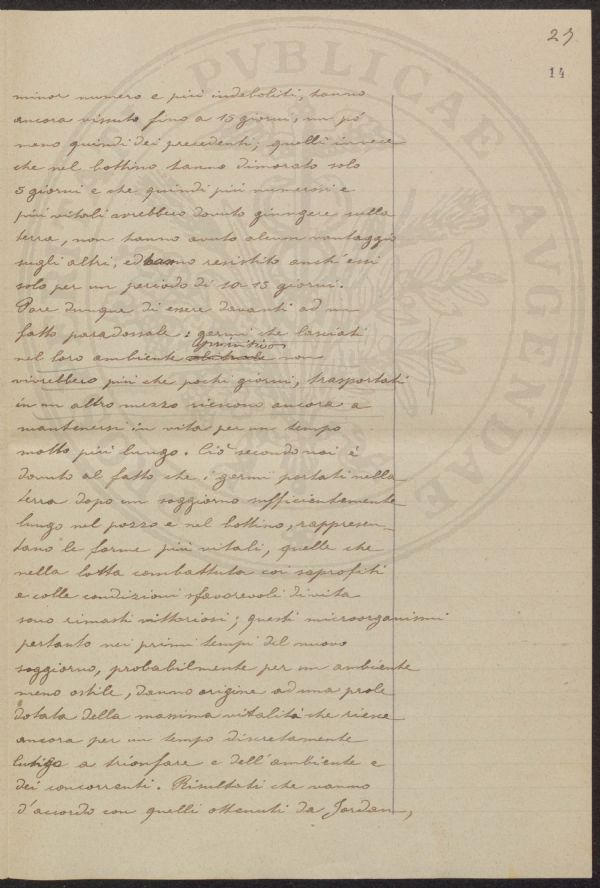 23
14
PVBLICAE
AVGENDAE
minor numero e più indeboliti, hanno
ancora vissuto fino a 15 giorni, un pò
meno quindi dei precedenti; quelli invece
che nel bottino hanno dimorato solo
5 giorni e che quindi più numerosi e
più vitali avrebbero dovuto giungere nella
terra, non hanno avuto alcun vantaggio
sugli altri, ed hanno resistito anch'essi
solo per un periodo di 10-15 giorni.
Pare dunque di essere davanti ad un
fatto paradossale: germi che lasciati
primitivo
nel loro ambiente non
vivrebbero più che pochi giorni, trasportati
in un altro mezzo riescono ancora a
mantenersi in vita per un tempo
molto più lungo. Ciò secondo noi è
dovuto al fatto che i germi portati nella
terra dopo un soggiorno sufficientemente
lungo nel pozzo e nel bottino, rappresen-
tano le forme più vitali, quelle che
nella lotta combattuta coi saprofiti
e colle condizioni sfavorevoli di vita
sono rimasti vittoriosi; questi microorganismi
pertanto nei primi tempi del nuovo
soggiorno, probabilmente per un ambiente
meno ostile, danno origine ad una prole
dotata della massima vitalità che riesce
ancora per un tempo discretamente
lungo a trionfare e dell'ambiente e
dei concorrenti. Risultati che vanno
d'accordo con quelli ottenuti da Jordan,